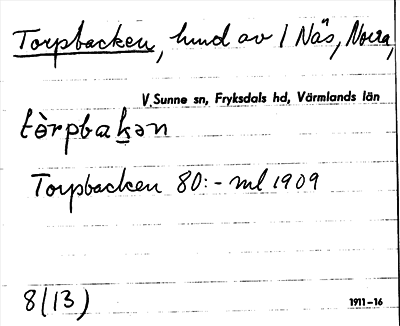 Torpbacken, hmd av 1 Näs, Norra,
V. Sunne sn, Fryksdals hd, Värmlands län
tòrpbakən
Torpbacken 80:- ml 1909
8(13)
1911–16